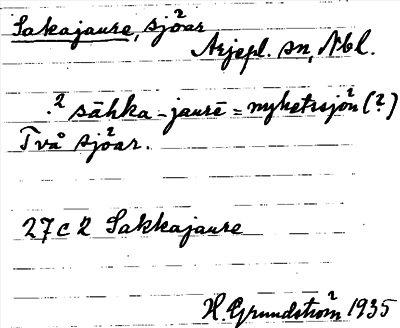 Sakajaure, sjöar
Arjepl. sn, Nbl.
.² sāhka-jaurē = nyhetssjön (?)
Två sjöar.
27c2 Sakkajaure
H. Grundström 1935